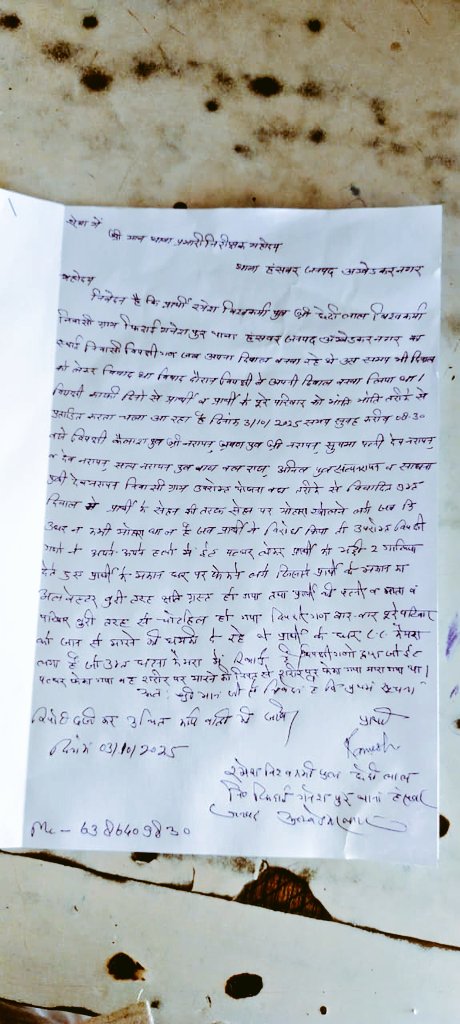 सेवा में
श्री मान थाना प्रभारी निरीक्षक महोदय
थाना हंसवर जनपद अम्बेडकरनगर
महोदय
निवेदन है कि प्रार्थी रमेश विश्वकर्मा पुत्र श्री छोटेलाल विश्वकर्मा
निवासी ग्राम गनेश पुर थाना हंसवर जनपद अम्बेडकर नगर का
स्थाई निवासी विपक्षी गण जब अपना दिवाल बनवा रहे थे उस समय भी दिवाल
को लेकर विवाद था विवाद दौरान विपक्षी ने अपनी दिवाल बनवा लिया था।
विपक्षी काफी दिनों से प्रार्थी व प्रार्थी के पूरे परिवार को भांति भांति तरीके से
प्रताडित करता चला आ रहा है दिनांक 3/10/2025 समय सुबह करीब 08:30
बजे विपक्षी कैलाश पुत्र श्री नरायन, पुत्र श्री नरायन, सुषमा पत्नी देव नरायन,
व देव नरायन, सत्य नरायन पुत्र राम, अनिल पुत्र सत्यनरायन व साधना
पुत्री देवनरायन निवासी ग्राम उपरोक्त तरीके से विवादित उक्त
दिवाल से प्रार्थी के सेहन की तरफ सेहन पर मोहारा खोलने लगे जब कि
उधर न कभी मोहारा था न है जब प्रार्थी ने विरोध किया तो उपरोक्त विपक्षी
गणों ने अपने अपने हाथों में ईट पत्थर लेकर प्रार्थी को भद्दी 2 गालियां
देते हुए प्रार्थी के मकान पर फेकने लगे जिससे प्रार्थी के मकान का
अलबेस्टर बुरी तरह क्षति ग्रस्त हो गया तथा प्रार्थी की पत्नी व माता व
परिवार बुरी तरह से चोटहिल हो गया विपक्षी गण बार-बार पूरे परिवार
को जान से मारने की धमकी दे रहे थे प्रार्थी के घर C.C. कैमरा
लगा है जो उक्त घटना कैमरा में रिकार्ड है विपक्षी गणों द्वारा जो ईट
पत्थर फेका गया वह शरीर पर मारने की नियत से शरीर पर फेका गया मारा गया था।
अतः श्री मान जी से निवेदन है कि प्रथम सूचना
रिपोर्ट दर्ज कर उचित कार्यवाही की जावे।
प्रार्थी
Ramesh
दिनांक 03/10/2025
रमेश विश्वकर्मा पुत्र छोटे लाल
नि० गनेश पुर थाना हंसवर
जनपद अम्बेडकरनगर
Mo - 6386409830